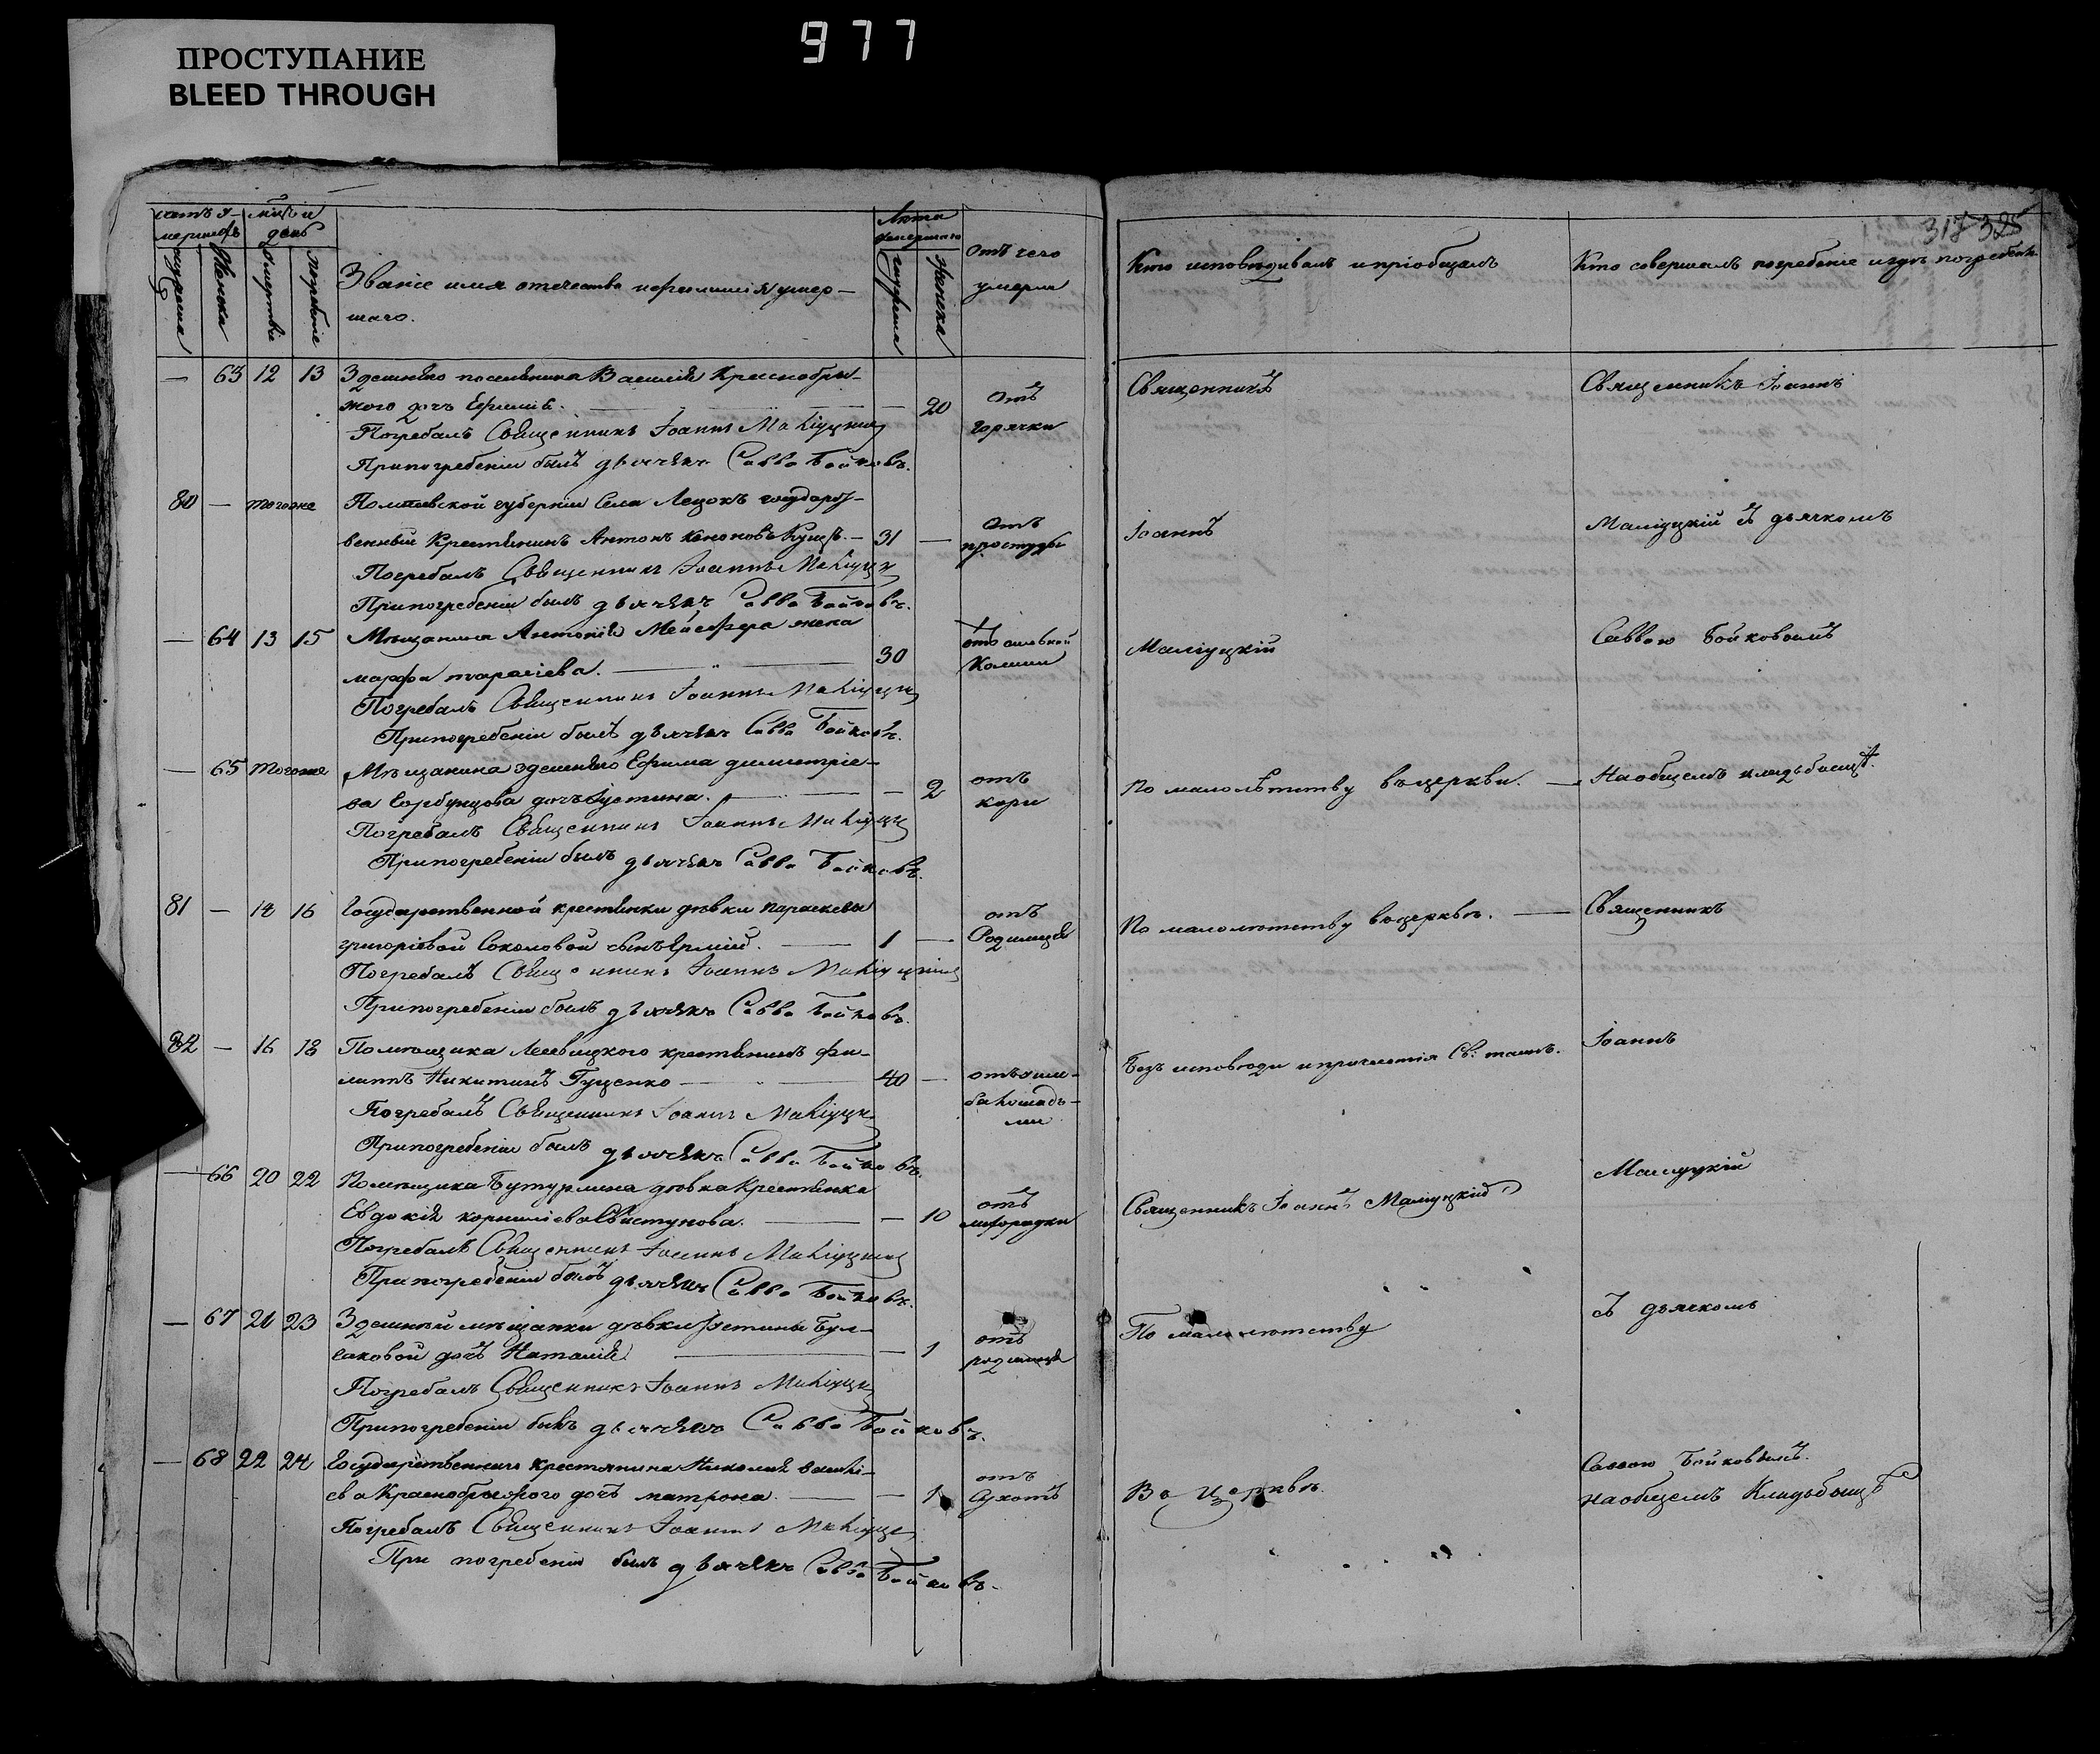 977
ПРОСТУПАНИЕ
BLEED THROUGH
317 325
Счетъ у- мѣсяцъ и Лѣта
мершихъ день умершаго Отъ чего
мужеска женска смерти погребеніе Званіе имя отечество и фамилія умер- мужеска женска умерли
шаго.
Кто исповѣдывалъ и пріобщалъ Кто совершалъ погребеніе и гдѣ погребены
— 63 12 13 Здешняго поселянина Василія Краснобры-
жого дочь Ефимія. — 20 Отъ горячки
Погребалъ Священникъ Іоаннъ Маліуцкій
При погребеніи былъ дьячекъ Савва Бойковъ.
80 — того же Полтавской губерніи Села государст-
венный Крестянинъ Антонъ Кононовъ Куцъ. — 31 — Отъ простуды
Погребалъ Священникъ Іоаннъ Маліуцкій
При погребеніи былъ дьячекъ Савва Бойковъ.
— 64 13 15 Мѣщанина Антонія жена
марфа тарасіева. 30 отъ
Погребалъ Священникъ Іоаннъ Маліуцкій
При погребеніи былъ дьячекъ Савва Бойковъ.
— 65 того же Мѣщанина здешняго Ефима димитріе-
ва Горбунцова дочь Іустина. — 2 отъ кори
Погребалъ Священникъ Іоаннъ Маліуцкій
При погребеніи былъ дьячекъ Савва Бойковъ.
81 — 14 16 Государственной крестянки дѣвки параскевы
григоріевой Соколовой сынъ Ермій. 1 — отъ Родимца
Погребалъ Священникъ Іоаннъ Маліуцкій
При погребеніи былъ дьячекъ Савва Бойковъ.
82 — 16 18 Помѣщика крестянинъ фи-
липпъ Никитинъ Гуценко — 40 — отъ ушиба лошадьми
Погребалъ Священникъ Іоаннъ Маліуцкій
При погребеніи былъ дьячекъ Савва Бойковъ.
— 66 20 22 Помѣщика Бутурлина дѣвка Крестянка
Евдокія корниліева Свистунова. — 10 отъ лихорадки
Погребалъ Священникъ Іоаннъ Маліуцкій
При погребеніи былъ дьячекъ Савва Бойковъ.
— 67 21 23 Здешней мѣщанки дѣвки фетины Бул-
гаковой дочь Наталія. — 1 отъ родимца
Погребалъ Священникъ Іоаннъ Маліуцкій
При погребеніи былъ дьячекъ Савва Бойковъ.
— 68 22 24 Государственнаго крестянина Николая василі-
ева Краснобрыжого дочь матрона. — 1 отъ Сухотъ
Погребалъ Священникъ Іоаннъ Маліуцкій
При погребеніи былъ дьячекъ Савва Бойковъ.
Священникъ Священникъ Іоаннъ
Іоаннъ Маліуцкій съ дьячкомъ
Маліуцкій Саввою Бойковымъ
По малолѣтству въ церкви. — На общемъ кладбищѣ.
По малолетству въ церквѣ. — Священникъ
Безъ исповѣди и причастія Св: таинъ. Іоаннъ
Священникъ Іоаннъ Маліуцкій Маліуцкій
По малолетству съ дьячкомъ
Въ Церквѣ. Саввою Бойковымъ.
на общемъ Кладбищѣ